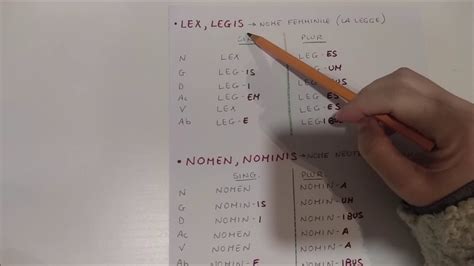 • LEX, LEGIS → NOME FEMMINILE (LA LEGGE)
PLUR.
N LEX LEG-ES
G LEG-IS LEG-UM
D LEG-I
Ac LEG-EM LEG-ES
V LEX LEG-ES
Ab LEG-E LEG-IBUS
• NOMEN, NOMINIS → NOME
SING. PLUR.
N NOMEN NOMIN-A
G NOMIN-IS NOMIN-UM
D NOMIN-I NOMIN-IBUS
Ac NOMEN NOMIN-A
V NOMEN NOMIN-A
Ab NOMIN-E NOMIN-IBUS